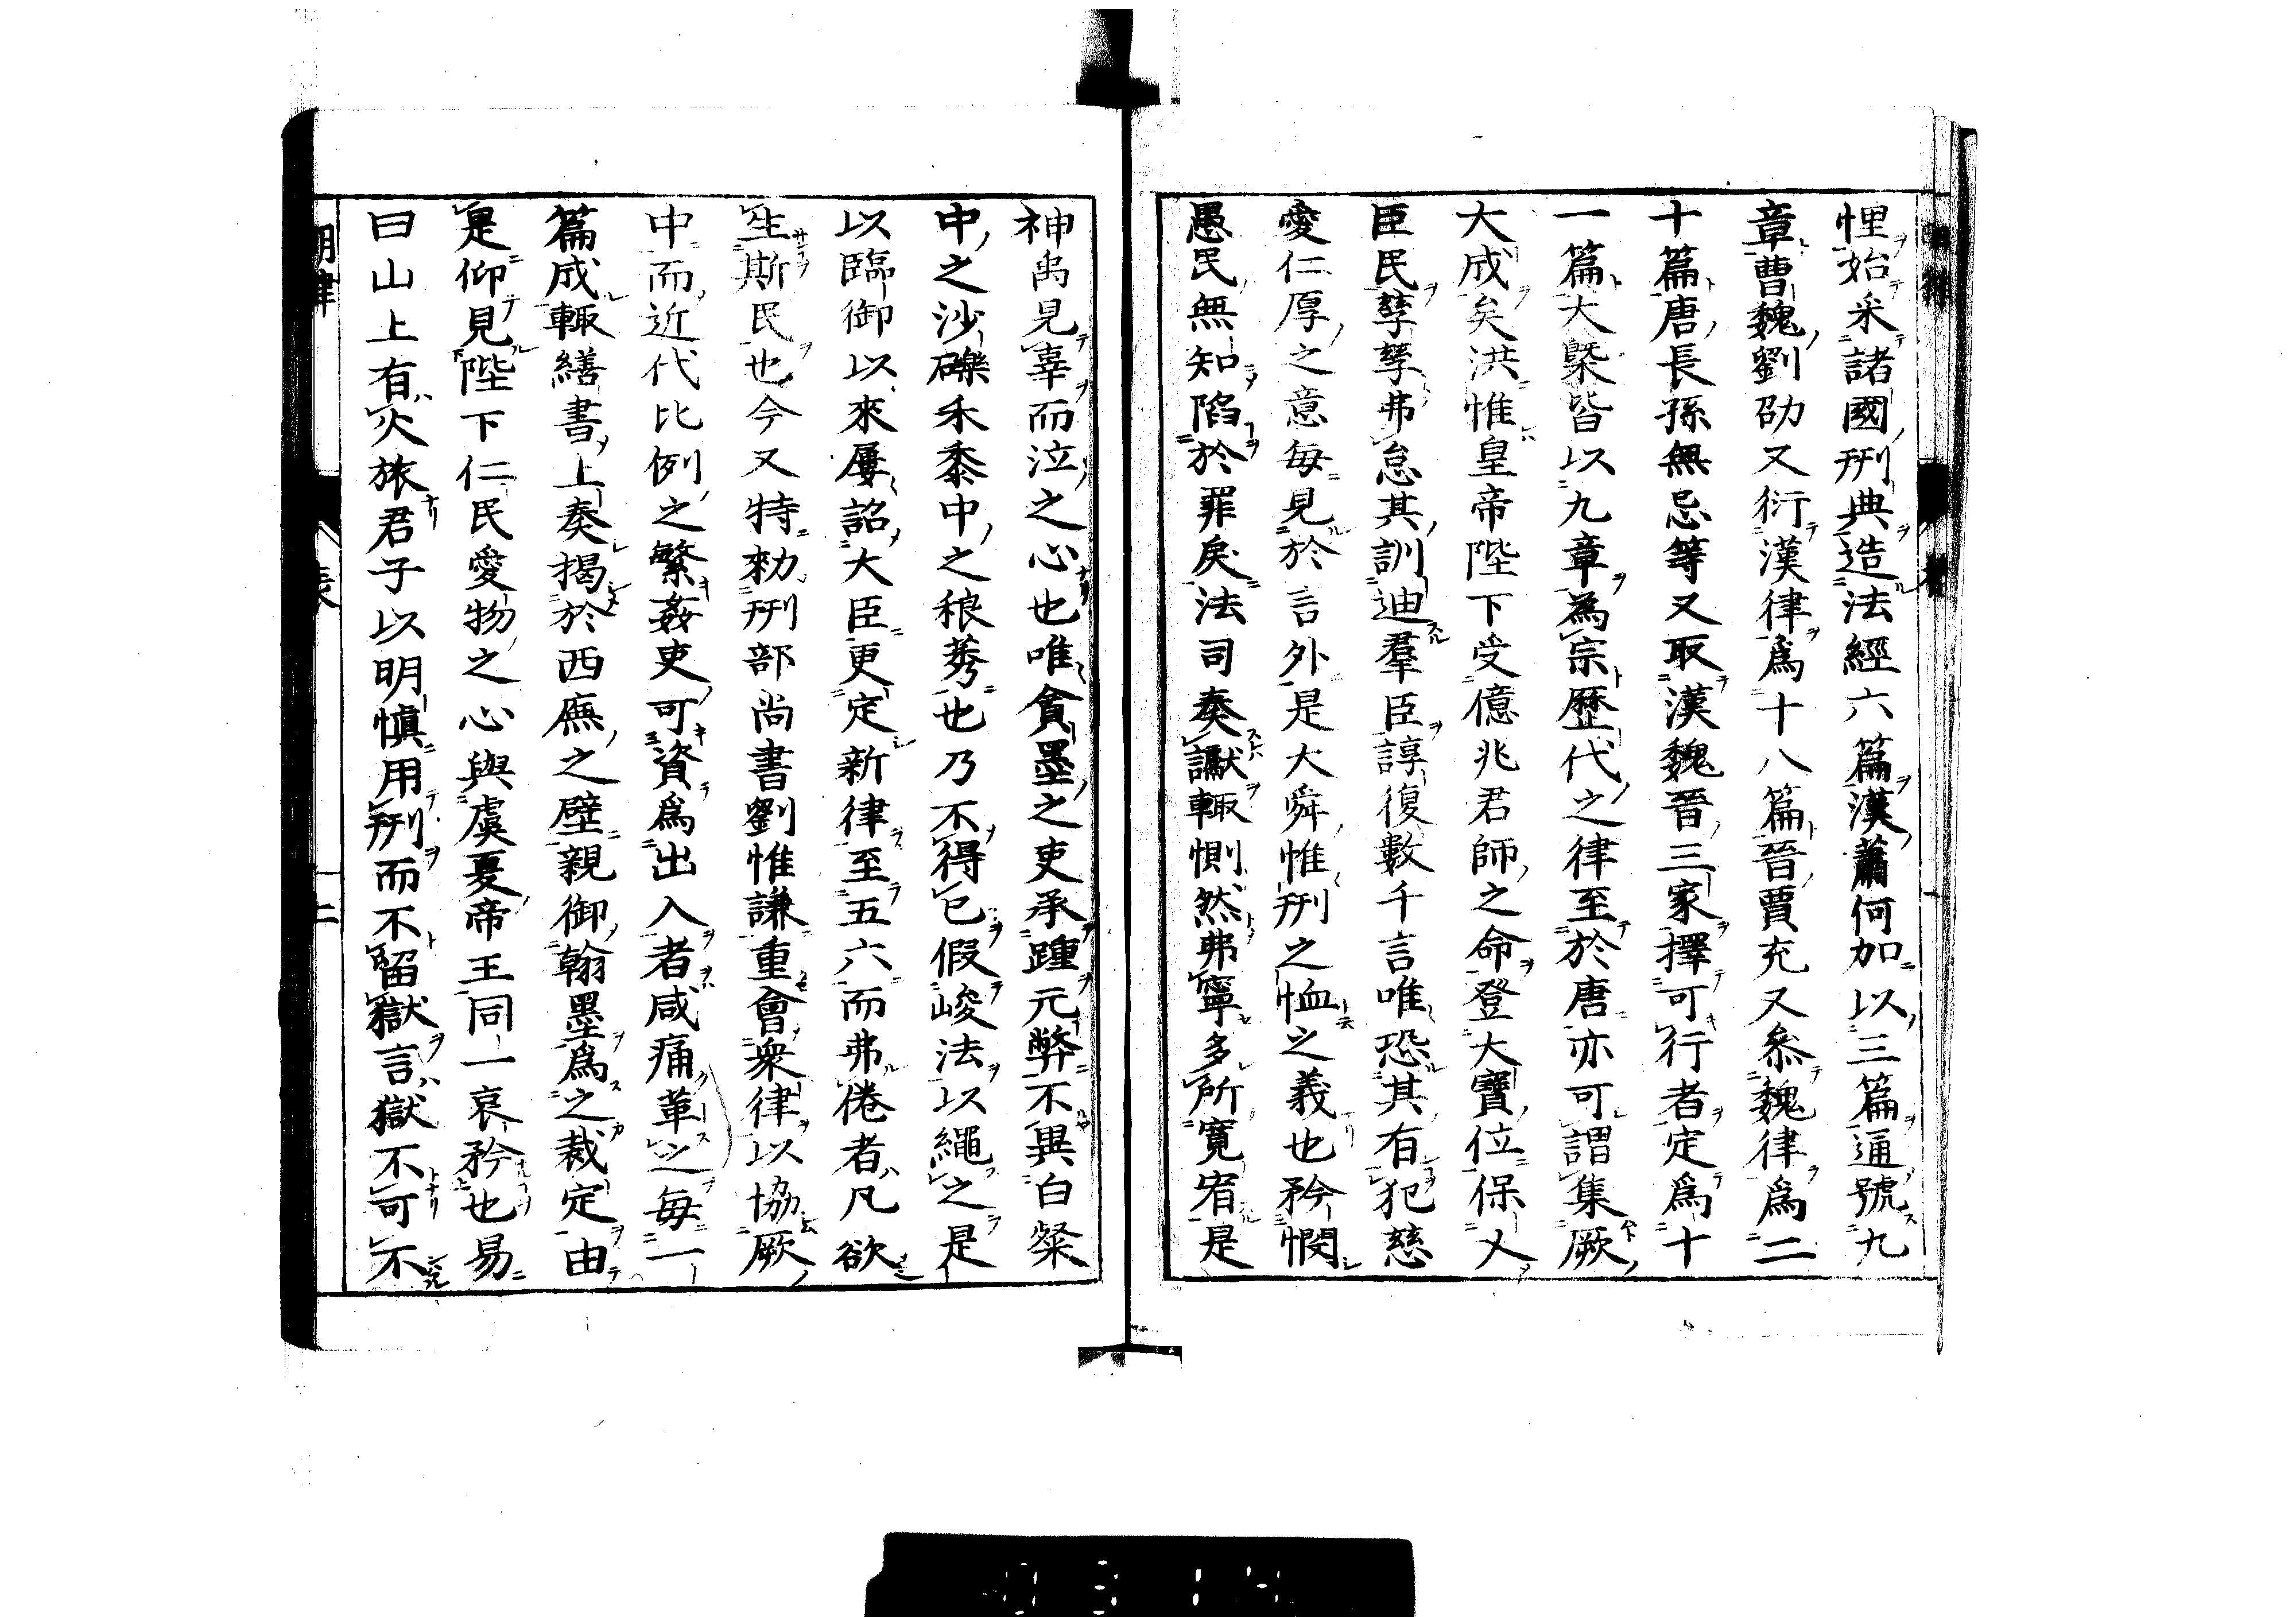 悝始采諸國刑典造法經六篇漢蕭何加以三篇通號九
章曹魏劉劭又衍漢律爲十八篇晉賈充又叅魏律爲二
十篇唐長孫無忌等又取漢魏晉三家擇可行者定爲十
一篇大槩皆以九章爲宗歷代之律至於唐亦可謂集厥
大成矣洪惟皇帝陛下受億兆君師之命登大寶位保乂
臣民孳孳弗怠其訓迪羣臣諄復數千言唯恐其有犯慈
愛仁厚之意每見於言外是大舜惟刑之恤之義也矜憫
愚民無知陷於罪戾法司奏讞輒惻然弗寧多所寬宥是
神禹見辜而泣之心也唯貪墨之吏承踵元弊不異白粲
中之沙礫禾黍中之稂莠也乃不得已假峻法以繩之是
以臨御以來屢詔大臣更定新律至五六而弗倦者凡欲
生斯民也今又特勑刑部尚書劉惟謙重會衆律以協厥
中而近代比例之繁姦吏可資爲出入者咸痛革之每一
篇成輒繕書上奏揭於西廡之壁親御翰墨爲之裁定由
是仰見陛下仁民愛物之心與虞夏帝王同一哀矜也易
曰山上有火旅君子以明慎用刑而不留獄言獄不可不
明律
表
二